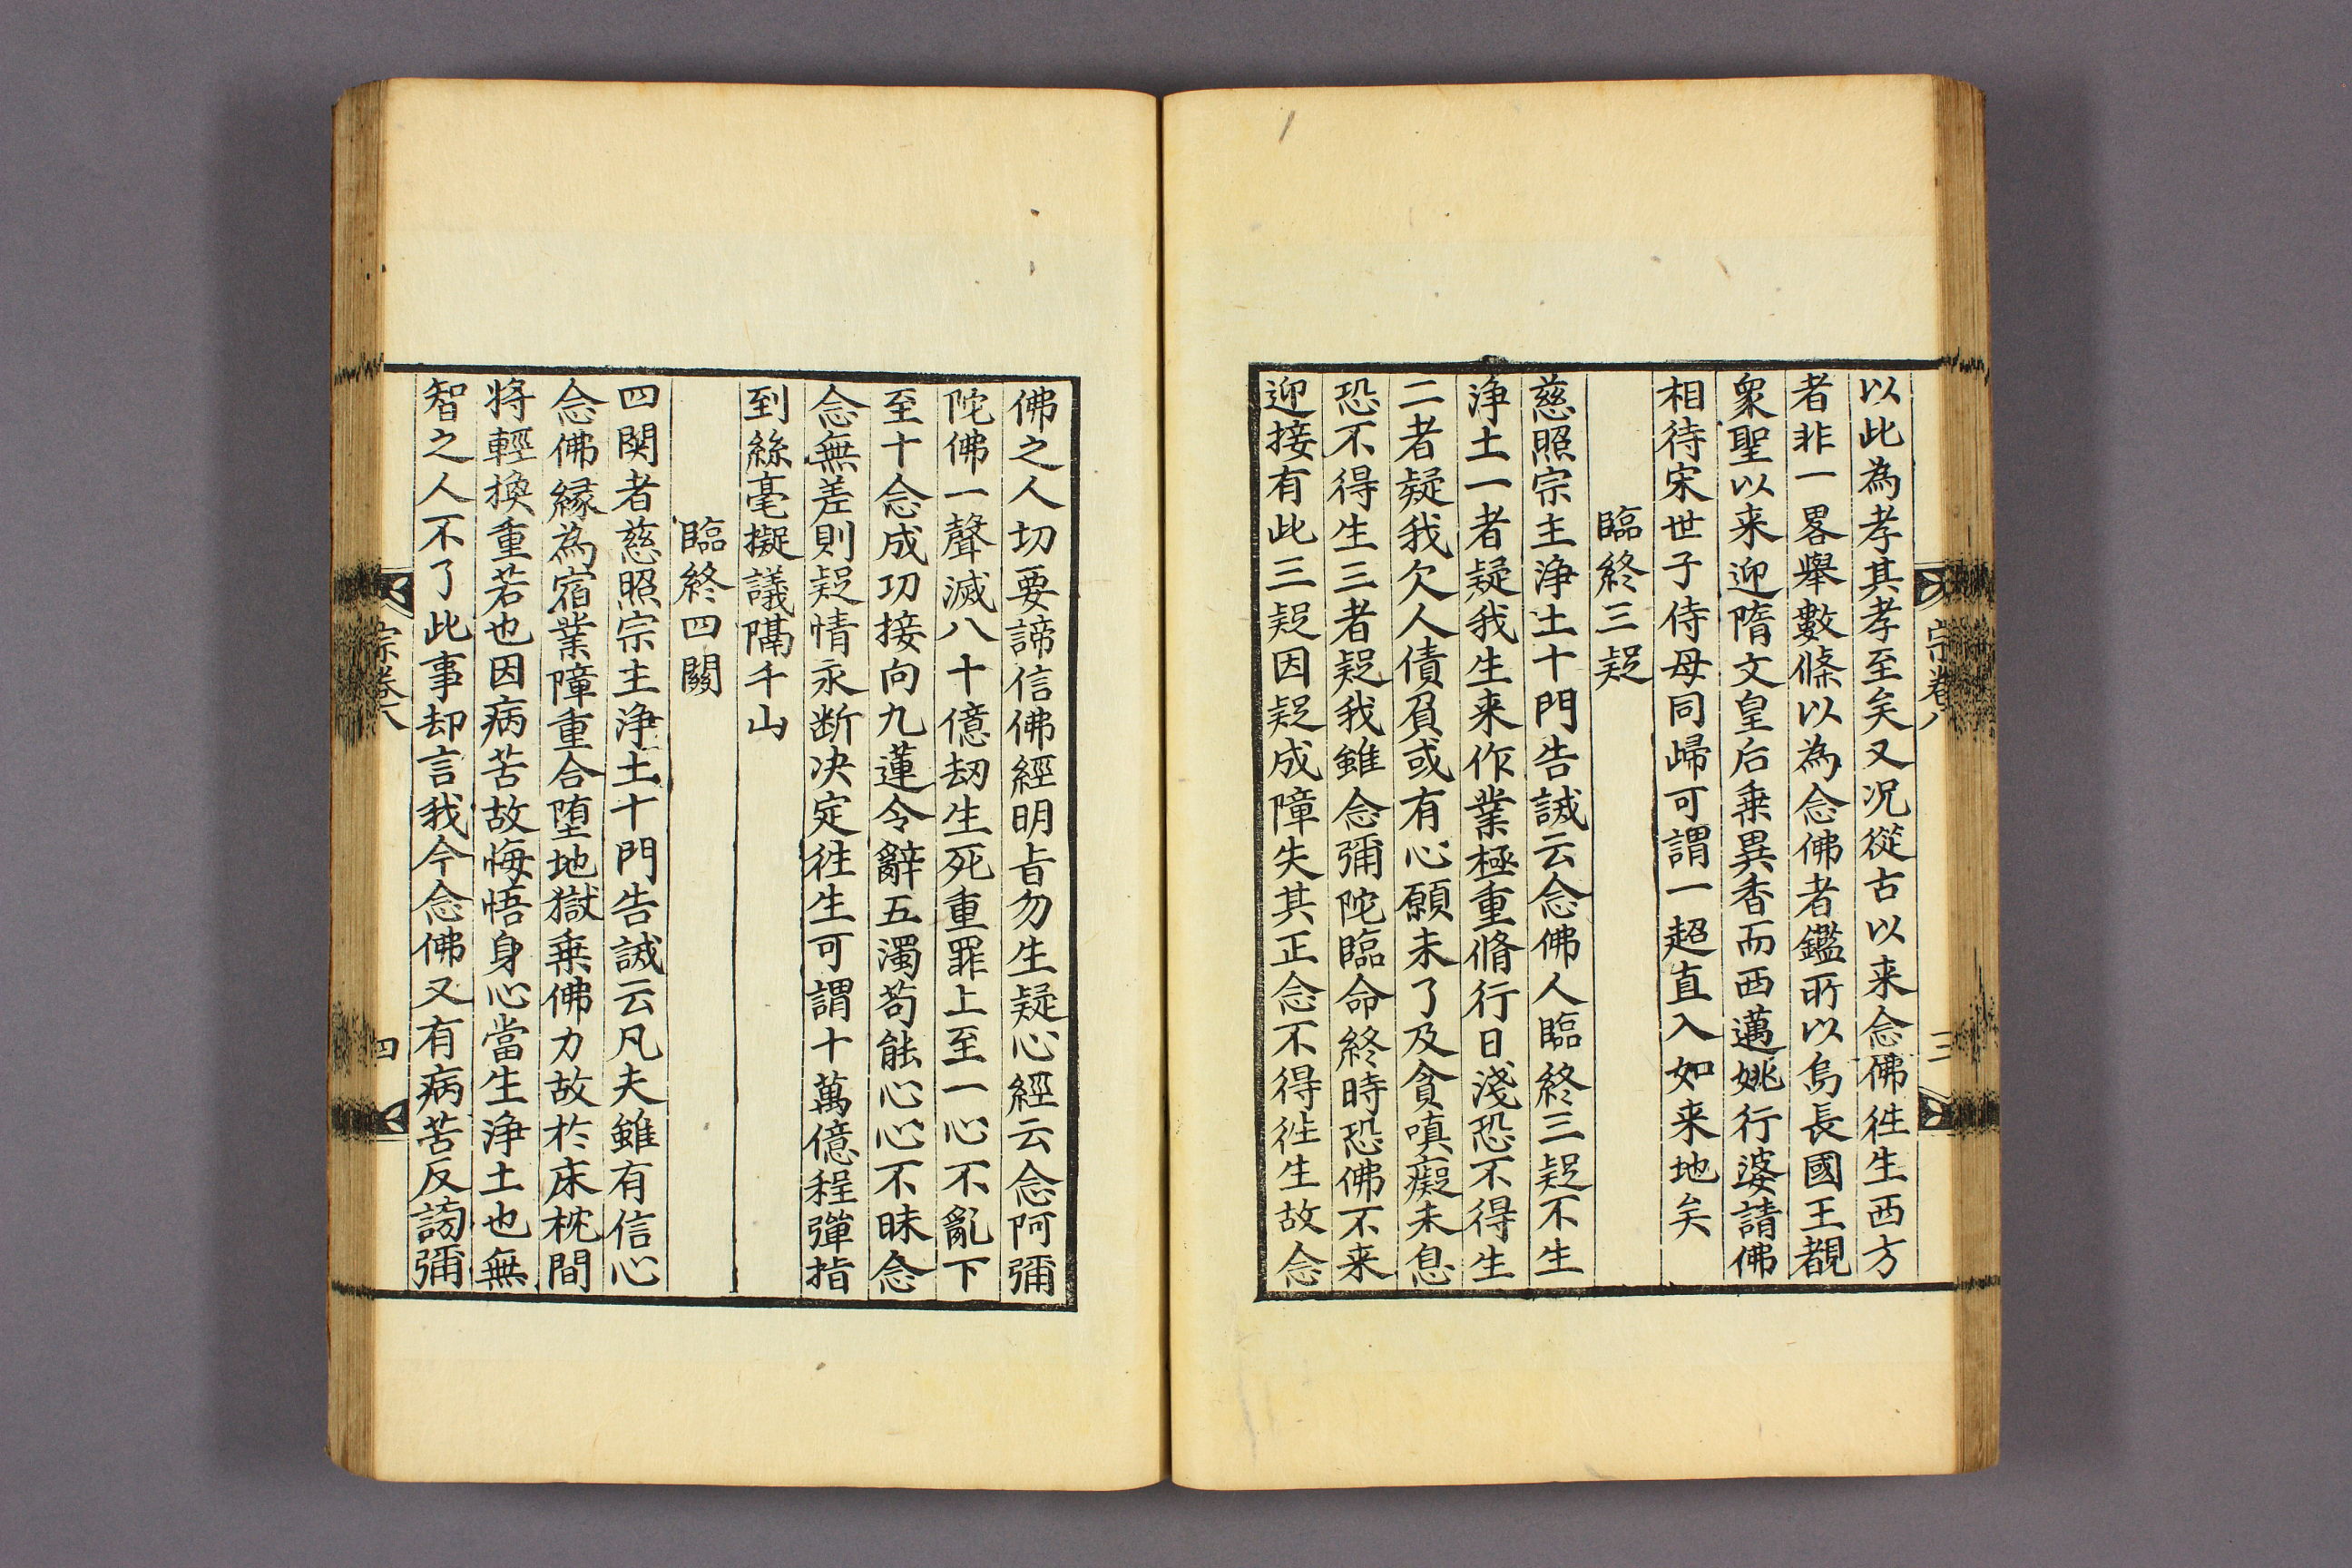 以此為孝其孝至矣又况從古以来念佛徃生西方
者非一畧舉數條以為念佛者鑑所以烏長國王覩
衆聖以来迎隋文皇后乗異香而西邁姚行婆請佛
相待宋世子侍母同歸可謂一超直入如来地矣
臨終三疑
慈照宗主浄土十門告誡云念佛人臨終三疑不生
浄土一者疑我生来作業極重脩行日淺恐不得生
二者疑我欠人債負或有心願未了及貪嗔癡未息
恐不得生三者疑我雖念彌陀臨命終時恐佛不来
迎接有此三疑因疑成障失其正念不得徃生故念
宗卷八
三
佛之人切要諦信佛經明旨勿生疑心經云念阿彌
陀佛一聲滅八十億劫生死重罪上至一心不亂下
至十念成功接向九蓮令辭五濁苟能心心不昧念
念無差則疑情永断决定徃生可謂十萬億程彈指
到絲毫擬議隔千山
臨終四關
四関者慈照宗主浄土十門告誡云凡夫雖有信心
念佛縁為宿業障重合堕地獄乗佛力故於床枕間
将輕換重若也因病苦故悔悟身心當生浄土也無
智之人不了此事却言我今念佛又有病苦反謗彌
宗卷八
四